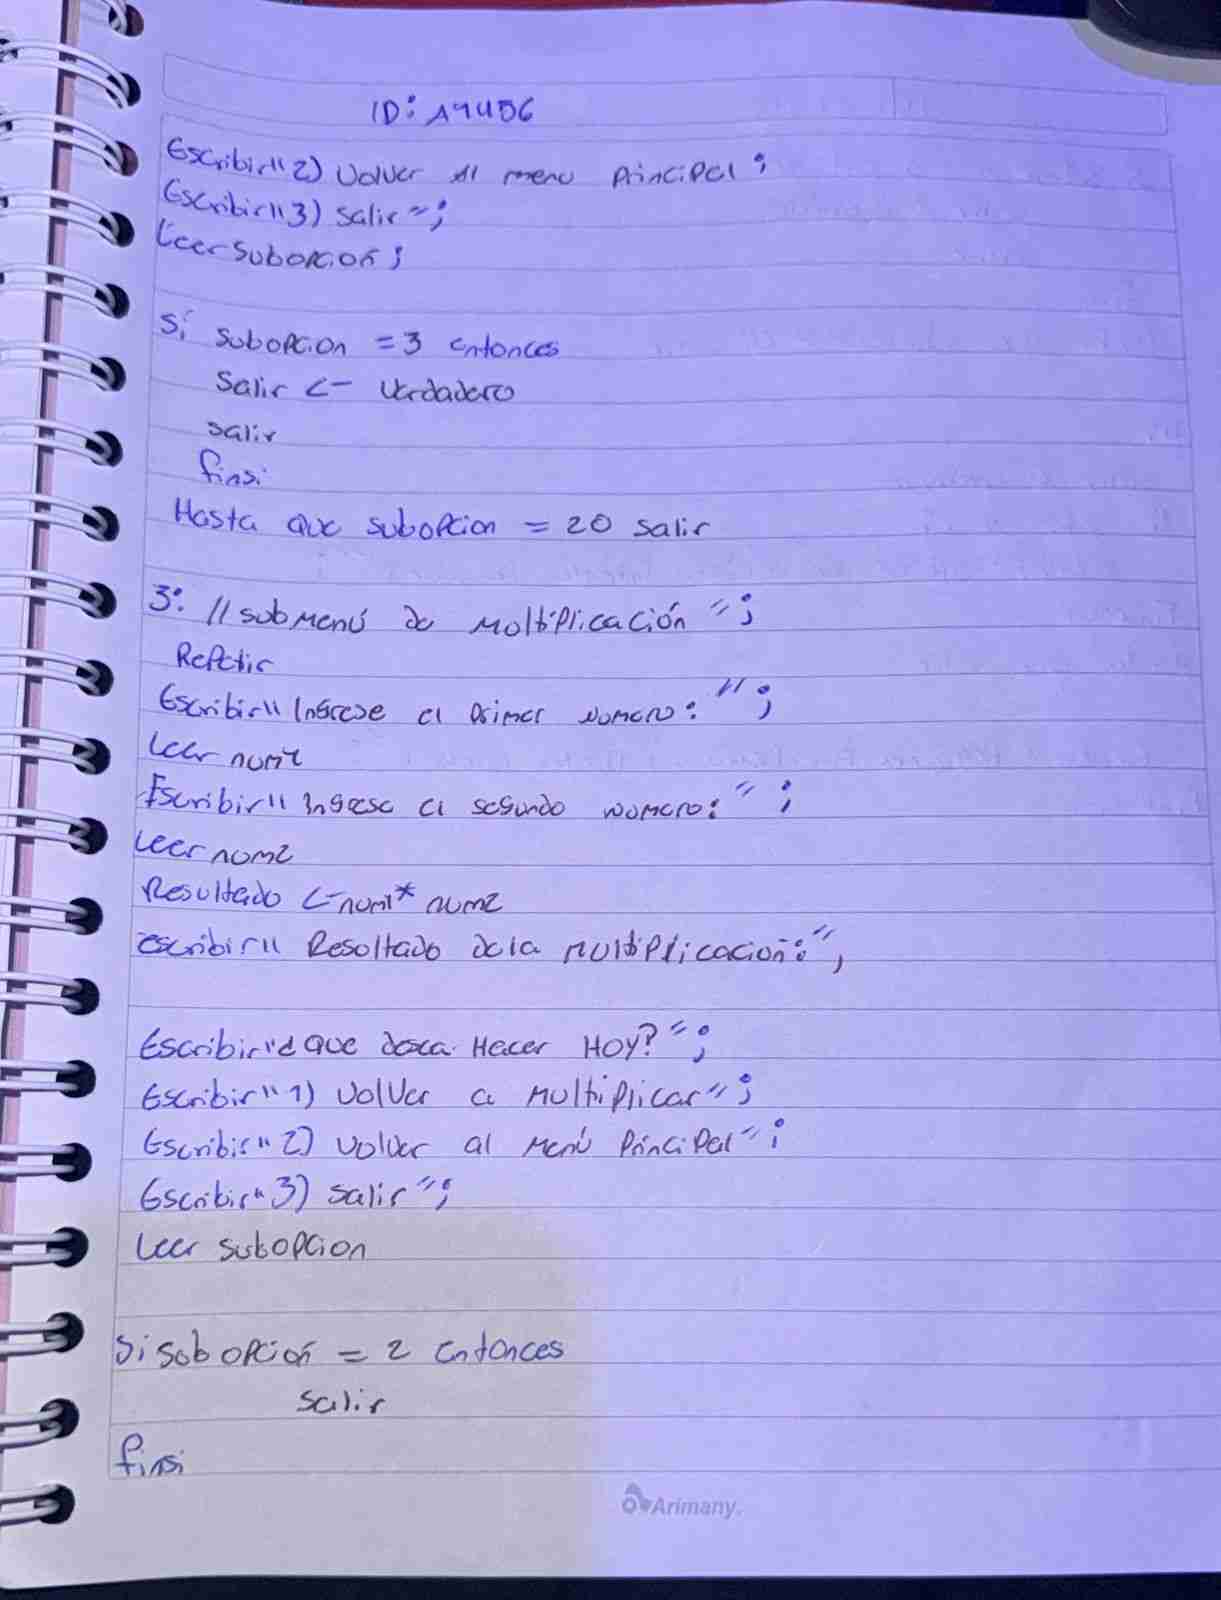 ID: A9456
Escribir" 2) Volver al menu Principal ;
Escribir" 3) salir ";
Leer subopcion ;
Si subopcion = 3 entonces
Salir <- Verdadero
salir
finsi
Hasta que subopcion = 20 salir
3: // submenú de Moltiplicación ";
Repetir
Escribir" Ingrese el primer nomero: " ;
Leer num1
Escribir" Ingrese el segundo nomero: " ;
Leer num2
Resultado <- num1 * num2
escribir" Resoltado de la multiplicacion: " ,
Escribir"¿ que desea Hacer Hoy? " ;
Escribir" 1) volver a Multiplicar " ;
Escribir" 2) volver al Menú Principal " ;
Escribir" 3) salir " ;
Leer subopcion
Si subopcion = 2 entonces
salir
finsi
Arimany.